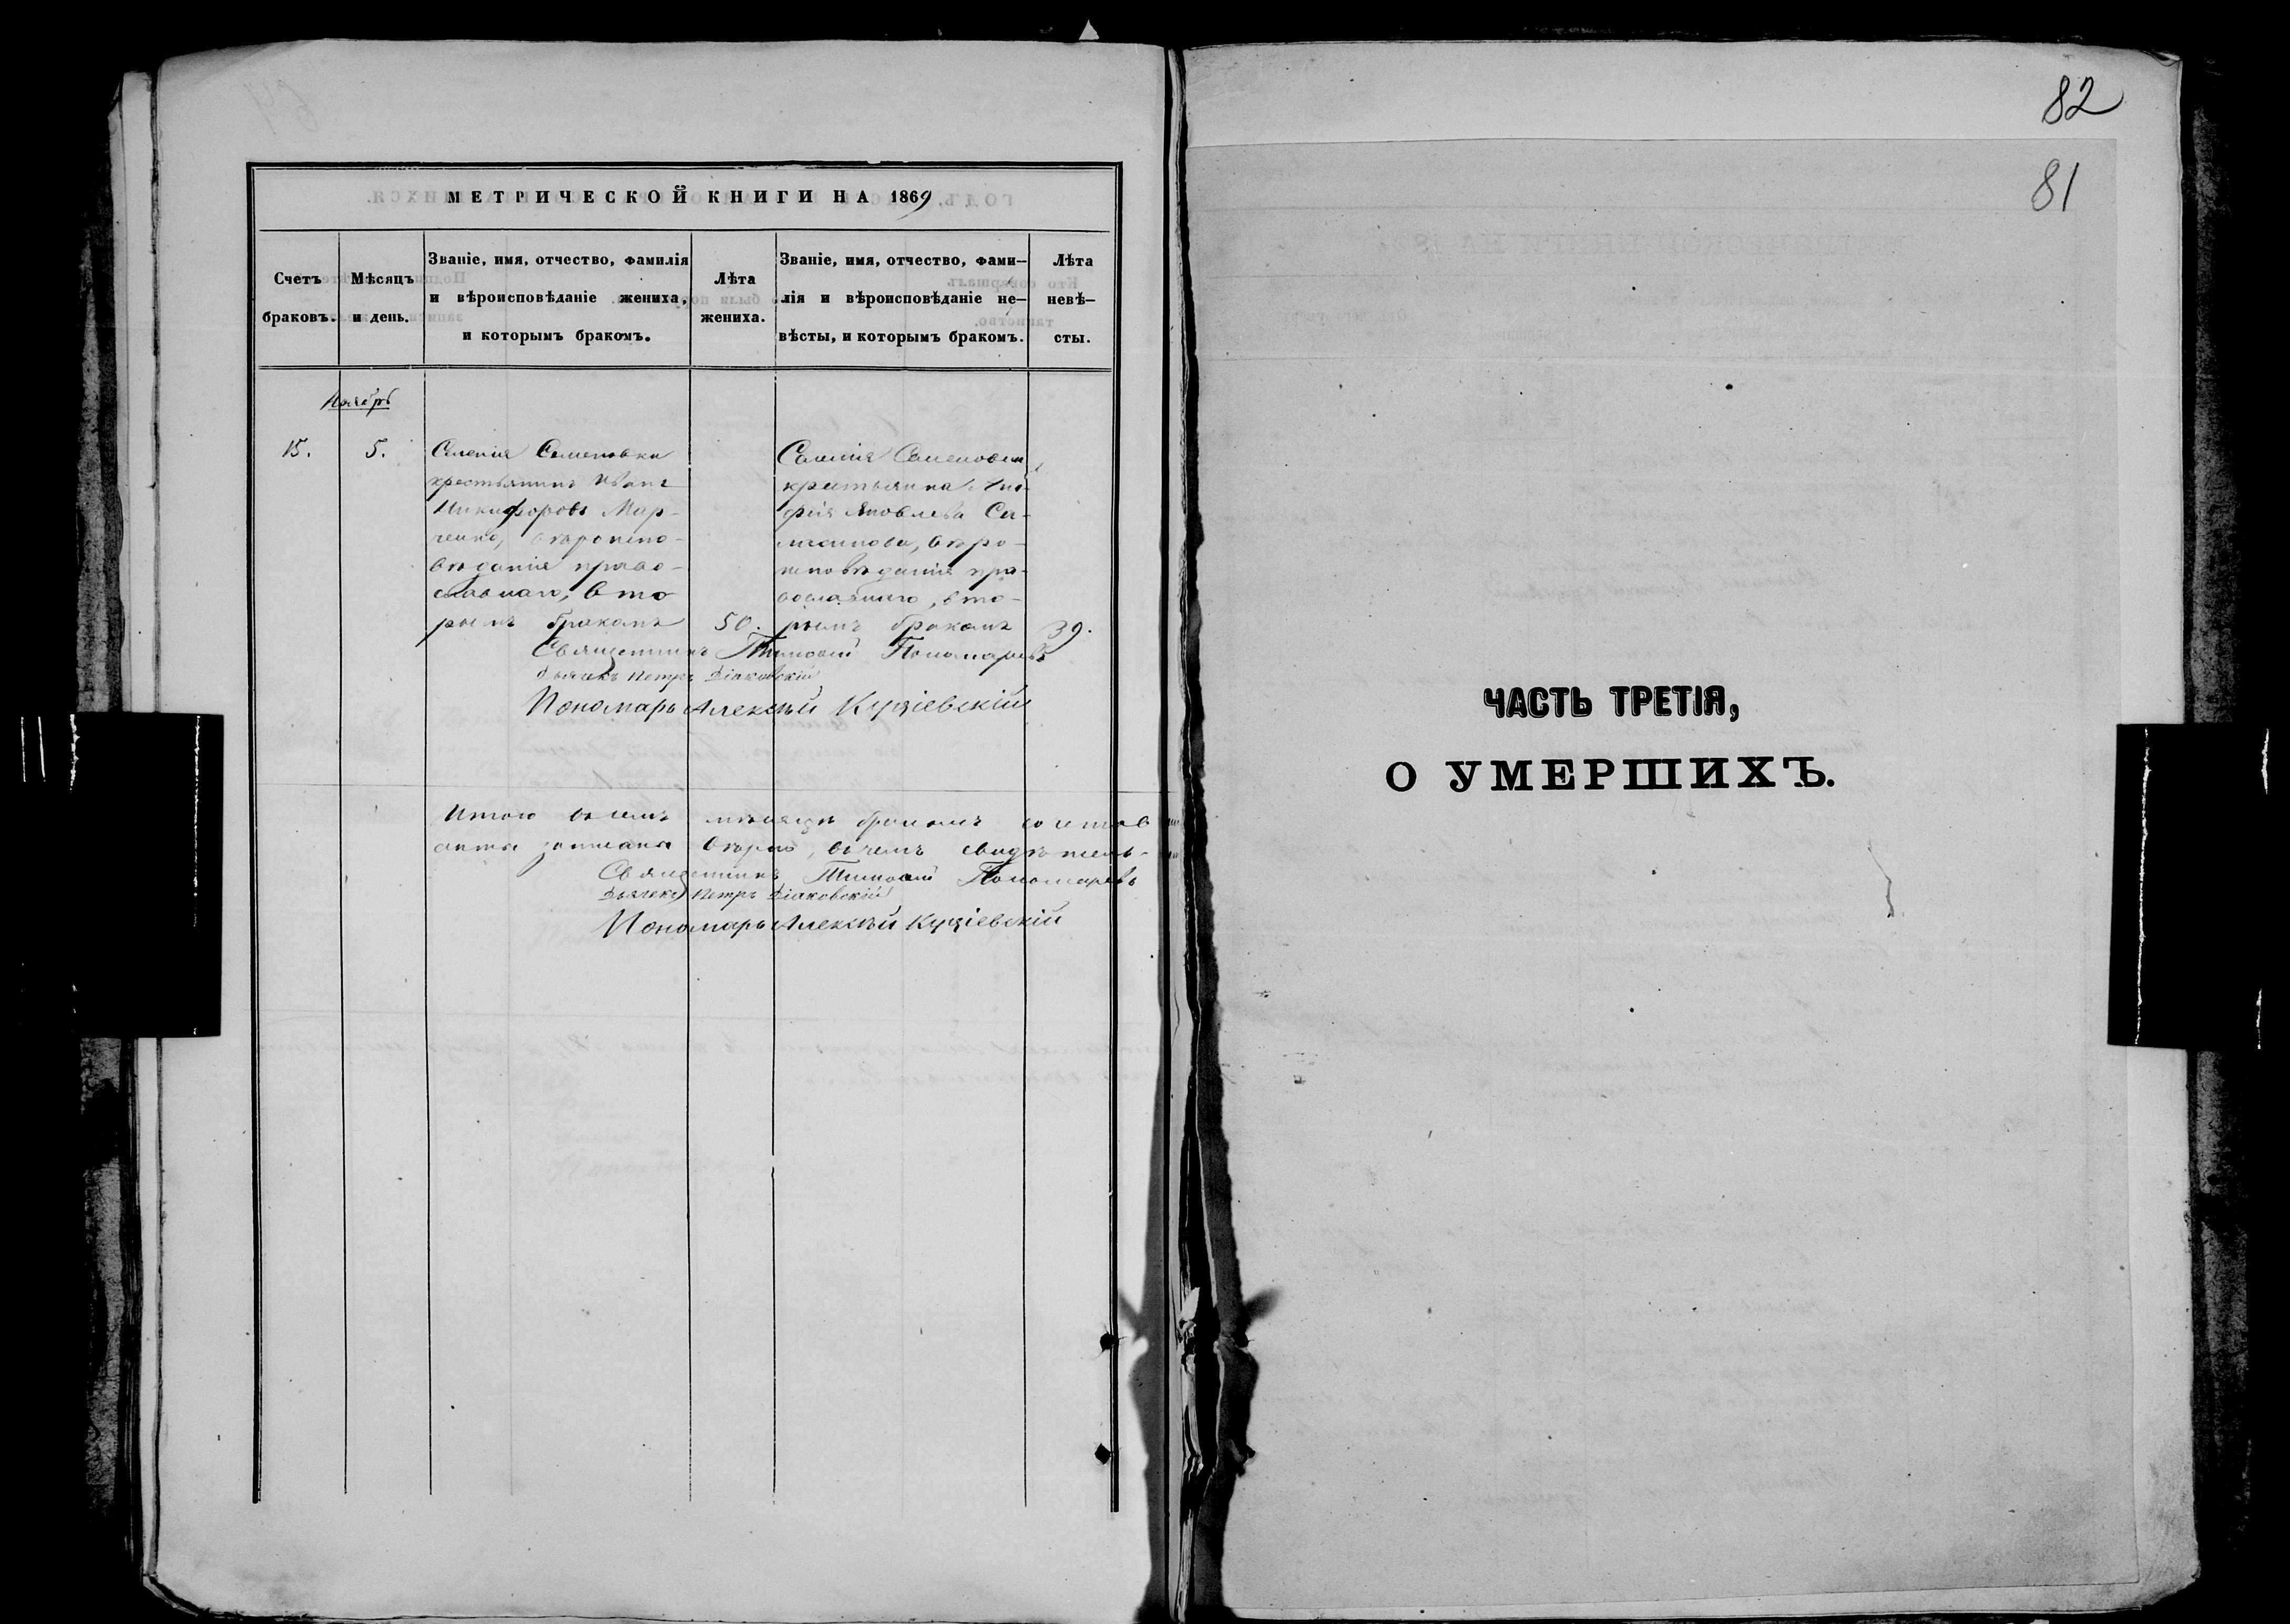 МЕТРИЧЕСКОЙ КНИГИ НА 1869
Счетъ браковъ.
Мѣсяцъ и день.
Званіе, имя, отчество, фамилія
и вѣроисповѣданіе жениха,
и которымъ бракомъ.
Лѣта
жениха.
Званіе, имя, отчество, фами-
лія и вѣроисповѣданіе не-
вѣсты, и которымъ бракомъ.
Лѣта
невѣ-
сты.
Ноябрь
15.
5.
Селенія Семеновки
крестьянинъ Иванъ
Никифоровъ Мар-
ченко, вѣроиспо-
вѣданія право-
славнаго, вто
рымъ бракомъ
50.
Селенія Семеновки
крестьянка
Яковлева
вѣро-
исповѣданія пра-
вославнаго, вто-
рымъ бракомъ
39.
Священникъ Тимоѳей Пономаревъ
Дьячекъ Петръ Діаковскій
Пономарь Алексѣй
Итого въ семъ мѣсяцѣ бракомъ сочетав
записана вѣрно, въ чемъ свидѣтель-
Священникъ Тимоѳей Пономаревъ
Дьячекъ Петръ Діаковскій
Пономарь Алексѣй
82
81
ЧАСТЬ ТРЕТІЯ,
О УМЕРШИХЪ.